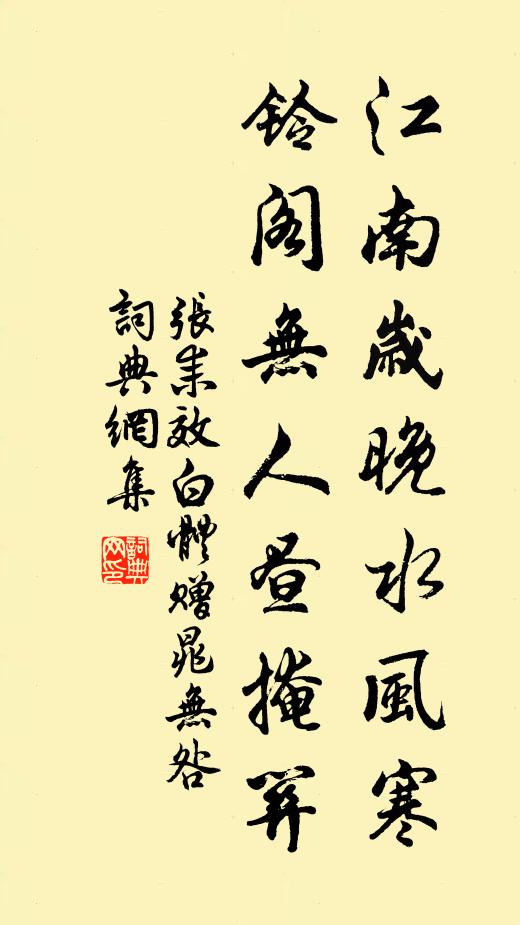 江南歲晚水風寒
鈴閣無人晝掩關
張耒效白體贈晁無咎
詞典網集
詞典網印